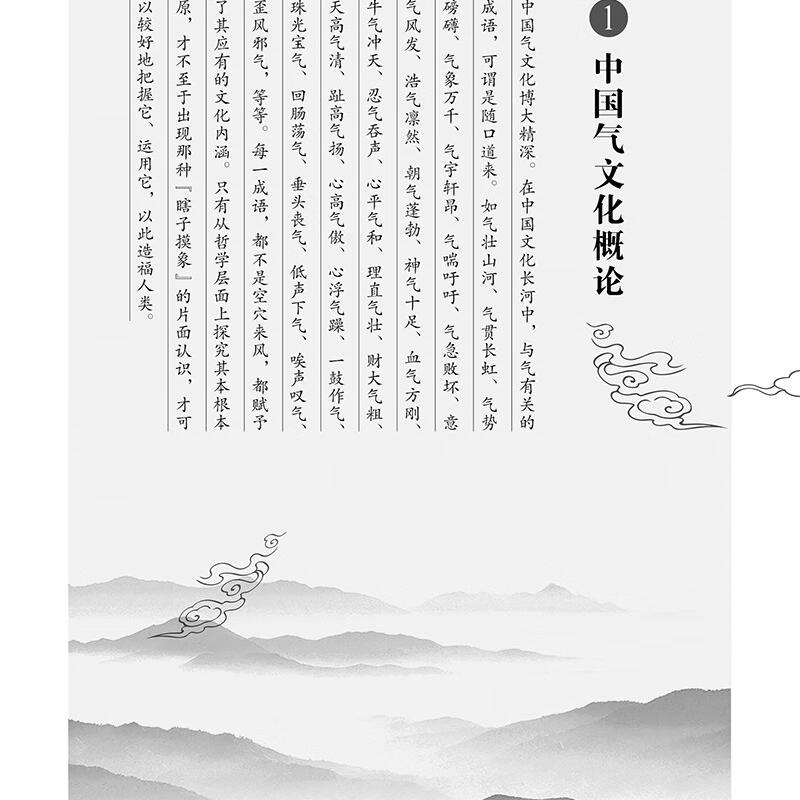 1
中国气文化概论
中国气文化博大精深。在中国文化长河中，与气有关的
成语，可谓是随口道来。如气壮山河、气贯长虹、气势
磅礴、气象万千、气宇轩昂、气喘吁吁、气急败坏、意
气风发、浩气凛然、朝气蓬勃、神气十足、血气方刚、
牛气冲天、忍气吞声、心平气和、理直气壮、财大气粗、
天高气清、趾高气扬、心高气傲、心浮气躁、一鼓作气、
珠光宝气、回肠荡气、垂头丧气、低声下气、唉声叹气、
歪风邪气，等等。每一成语，都不是空穴来风，都赋予
了其应有的文化内涵。只有从哲学层面上探究其本根本
原，才不至于出现那种『瞎子摸象』的片面认识，才可
以较好地把握它、运用它，以此造福人类。